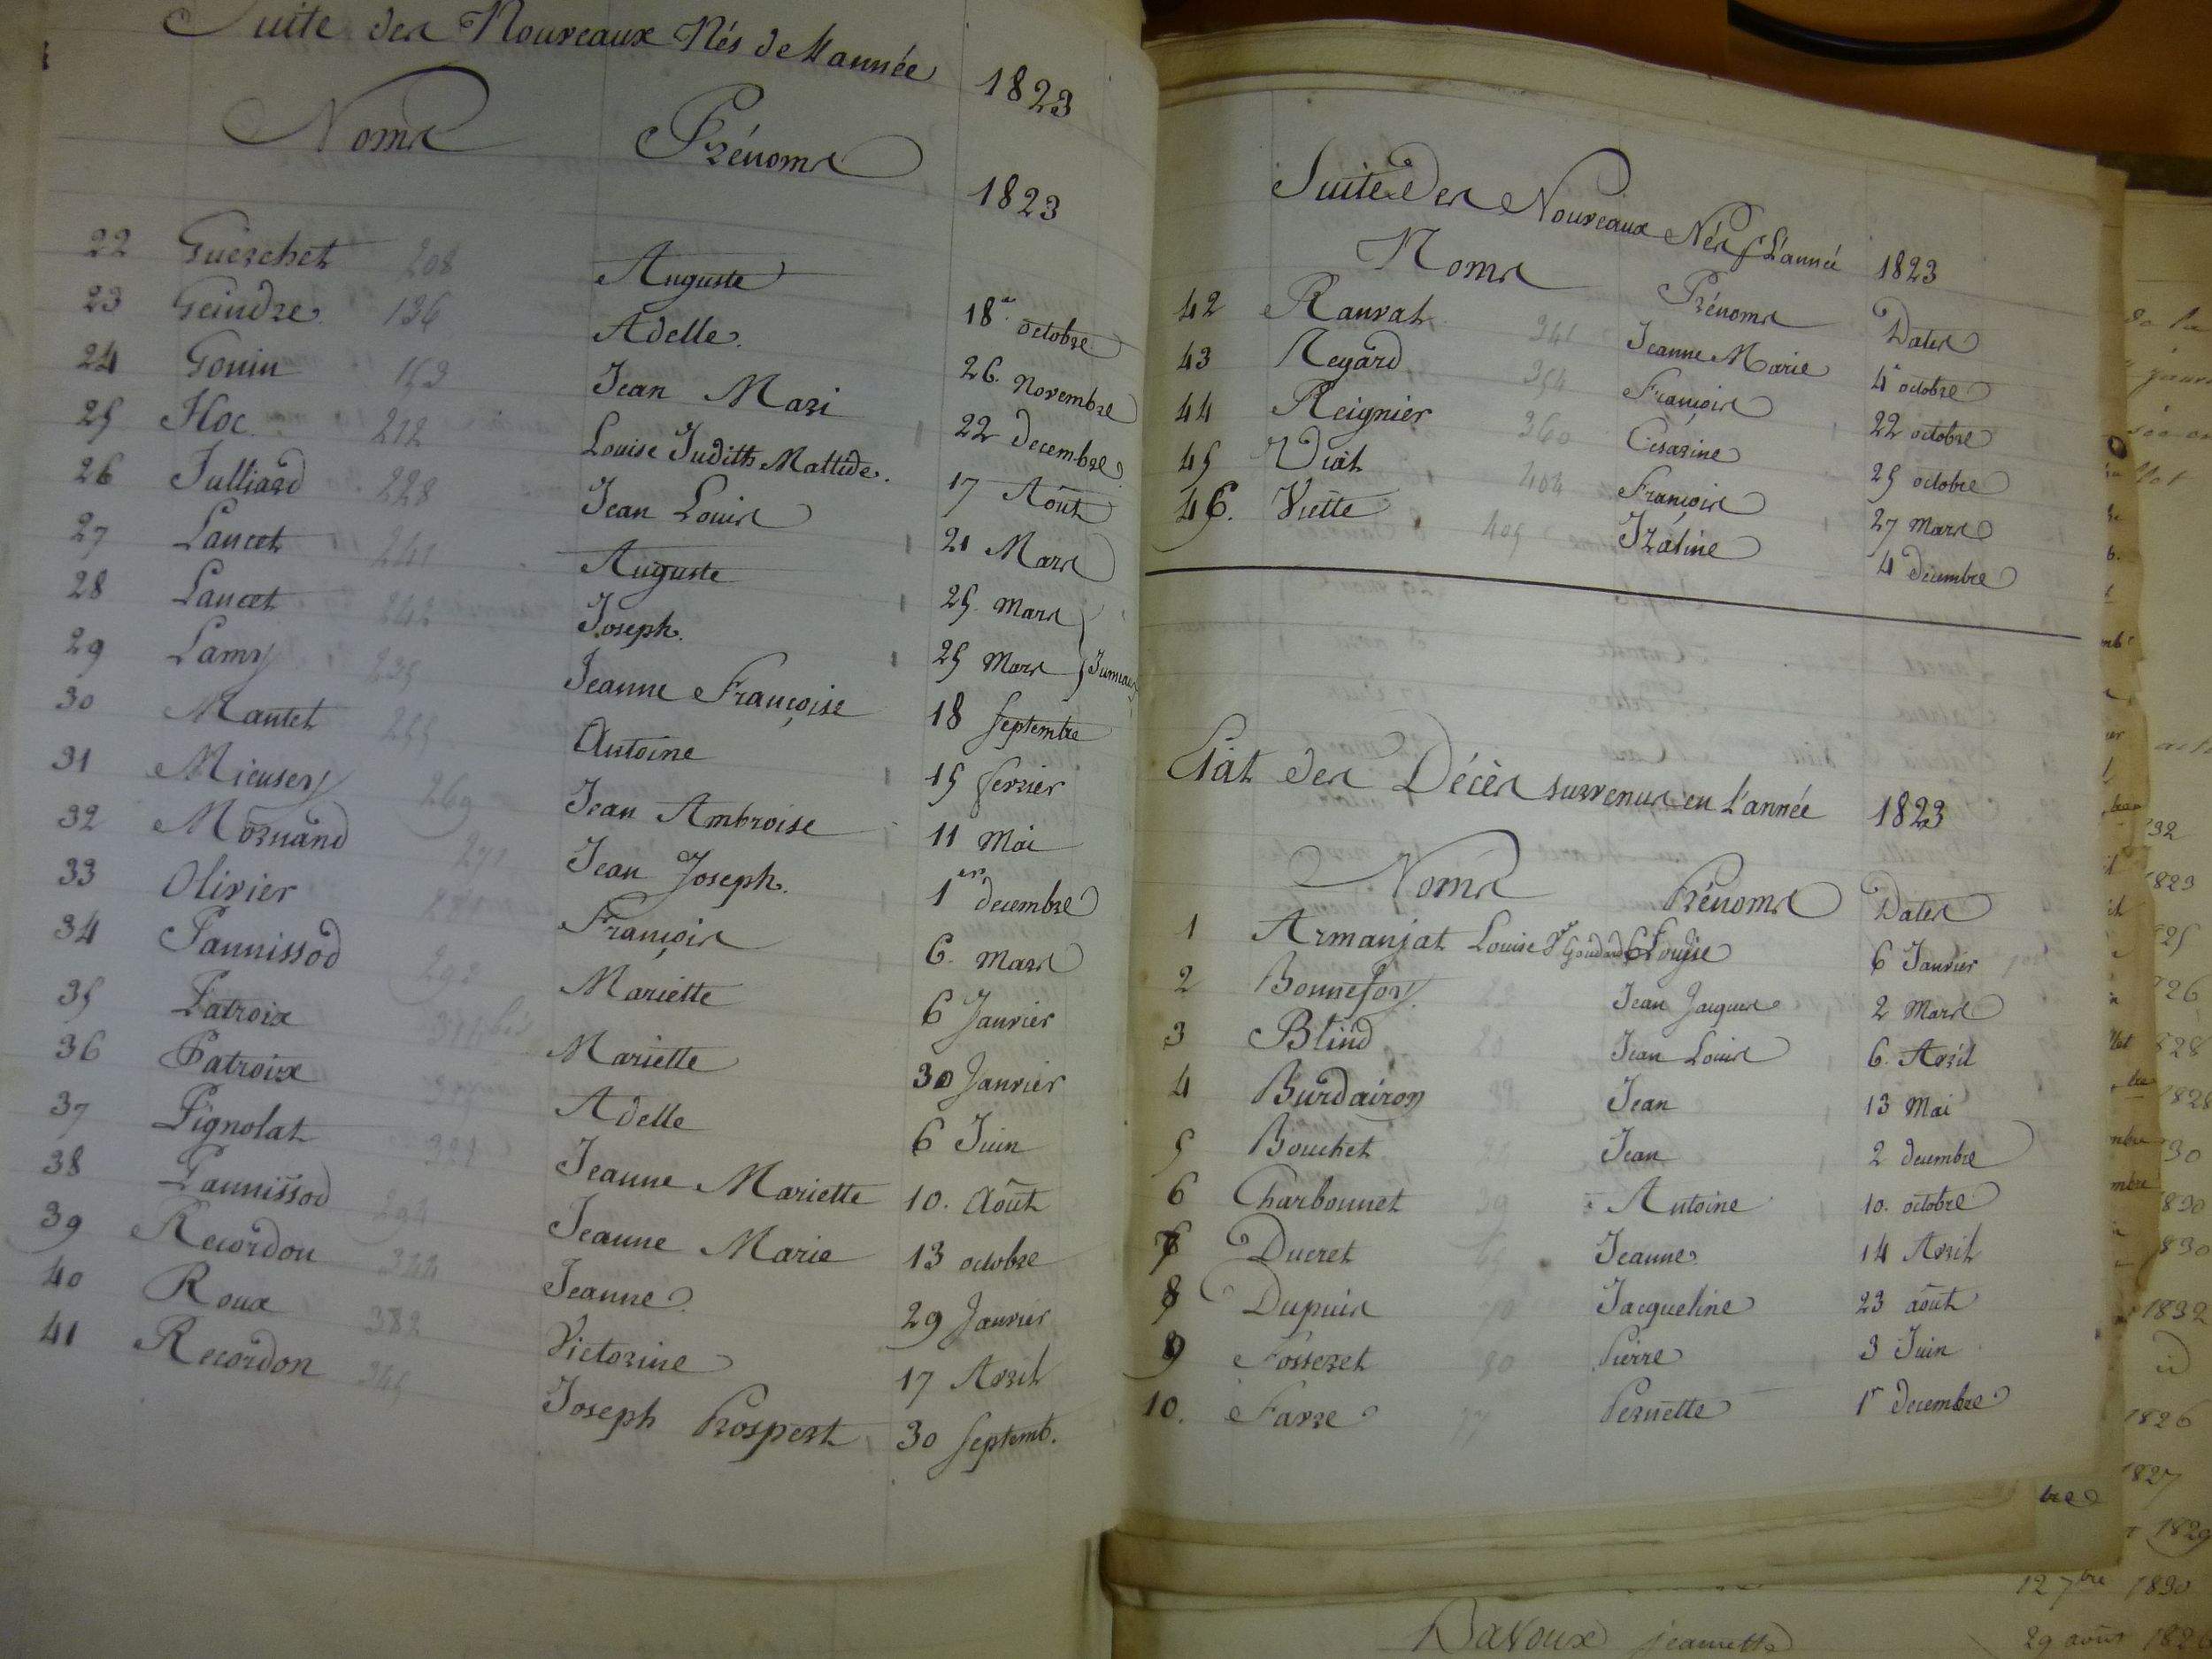 Suite des Nouveaux Nés de L'année 1823
Noms Prénoms 1823
22 Guerchet 208 Auguste 18 octobre
23 Geindre 136 Adelle 26 Novembre
24 Gouin 153 Jean Mari 22 decembre
25 Hoc 212 Louise Judith Mattide 17 Août
26 Julliard 228 Jean Louis 21 Mars
27 Lancet 241 Auguste 25 Mars
28 Lancet 242 Joseph 25 Mars Jumeaux
29 Lamy 235 Jeanne Françoise 18 Septembre
30 Mantet 255 Antoine 15 fevrier
31 Mieusery 269 Jean Ambroise 11 Mai
32 Mornand 271 Jean Joseph 1er decembre
33 Olivier François 6 Mars
34 Pannissod 292 Mariette 6 Janvier
35 Patroix Mariette 30 Janvier
36 Patroix Adelle 6 Juin
37 Pignolat 322 Jeanne Mariette 10. Août
38 Pannissod 294 Jeanne Marie 13 octobre
39 Recordon 344 Jeanne 29 Janvier
40 Roux 382 Victorine 17 Avril
41 Recordon 345 Joseph Prospert 30 Septemb.
Suite des Nouveaux Nés L'année 1823
Noms Prénoms Dates
42 Ranvat 341 Jeanne Marie 4 octobre
43 Regard 354 François 22 octobre
44 Reignier 360 Cesarine 25 octobre
45 Viat 404 François 27 Mars
46. Viette 405 Izaline 4 decembre
Etat des Décès survenus en L'année 1823
Noms Prénoms Dates
1 Armanjat Louise 6 Janvier
2 Bonnefoy Jean Jacques 2 Mars
3 Blind 20 Jean Louis 6. Avril
4 Burdairon Jean 13 Mai
5 Bouchet Jean 2 decembre
6 Charbonnet 39 Antoine 10. octobre
7 Ducret 65 Jeanne 14 Avril
8 Dupuis 70 Jacqueline 23 août
9 Fosseret 80 Pierre 3 Juin
10. Favre 77 Pernette 1r decembre
1832
1826
1827
1829
12 7bre 1830
Davoux jeannette 29 août 1826